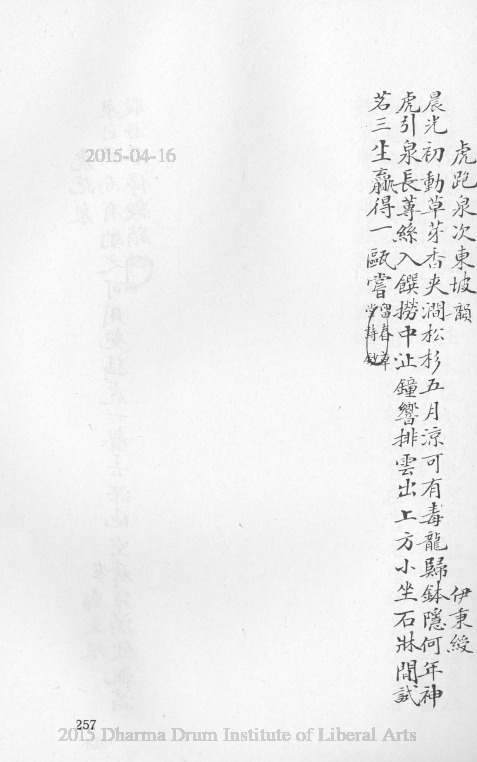 虎跑泉次東坡韻 伊秉綬
晨光初動草芽香夾澗松杉五月涼可有毒龍歸鉢隱何年神
虎引泉長蓴絲入饌撈中沚鐘響排雲出上方小坐石牀間試
茗三生贏得一甌嘗
留春草
堂詩鈔
2015-04-16
257
2015 Dharma Drum Institute of Liberal Arts